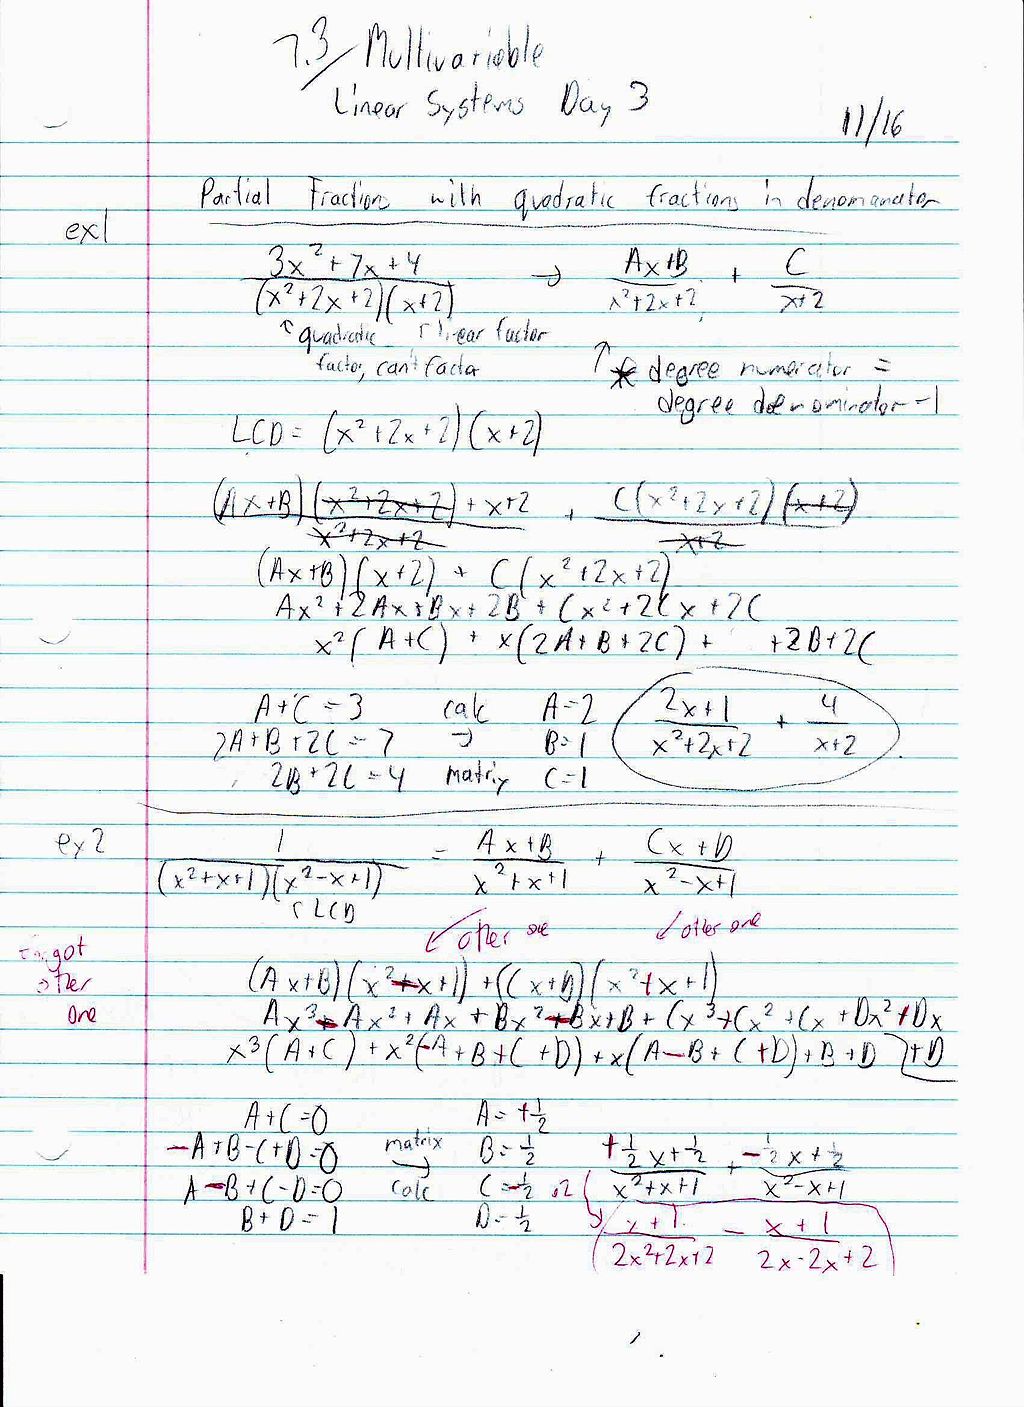 7.3/ Multivariable
Linear Systems Day 3
11/16
Partial Fractions with quadratic fractions in denomanator
ex1
3x²+7x+4 / (x²+2x+2)(x+2) → Ax+B / x²+2x+2 + C / x+2
↑ quadratic factor, can't factor
↑ linear factor
↑ * degree numerator =
degree denominator -1
LCD = (x²+2x+2)(x+2)
(Ax+B)(x²+2x+2)+x+2 / x²+2x+2 + C(x²+2x+2)(x+2) / x+2
(Ax+B)(x+2) + C(x²+2x+2)
Ax²+2Ax+Bx+2B+Cx²+2Cx+2C
x²(A+C) + x(2A+B+2C) + +2B+2C
A+C=3 calc A=2 2x+1 / x²+2x+2 + 4 / x+2
2A+B+2C=7 → B=1
2B+2C=4 matrix C=1
ex2
1 / (x²+x+1)(x²-x+1) = Ax+B / x²+x+1 + Cx+D / x²-x+1
↑ LCD
↙ other one ↙ other one
forgot
other
one
(Ax+B)(x²-x+1)+(Cx+D)(x²+x+1)
Ax³-Ax²+Ax+Bx²-Bx+B+Cx³+Cx²+Cx+Dx²+Dx
+D
x³(A+C)+x²(-A+B+C+D)+x(A-B+C+D)+B+D
A+C=0 A=+½
-A+B-C+D=0 matrix B=½ +½x+½ / x²+x+1 + -½x+½ / x²-x+1
A-B+C-D=0 → calc C=-½ .2
B+D=1 D=½ x+1 / 2x²+2x+2 - x+1 / 2x-2x+2